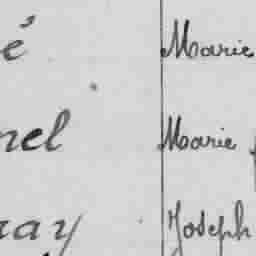 é Marie
nel Marie
ray Joseph